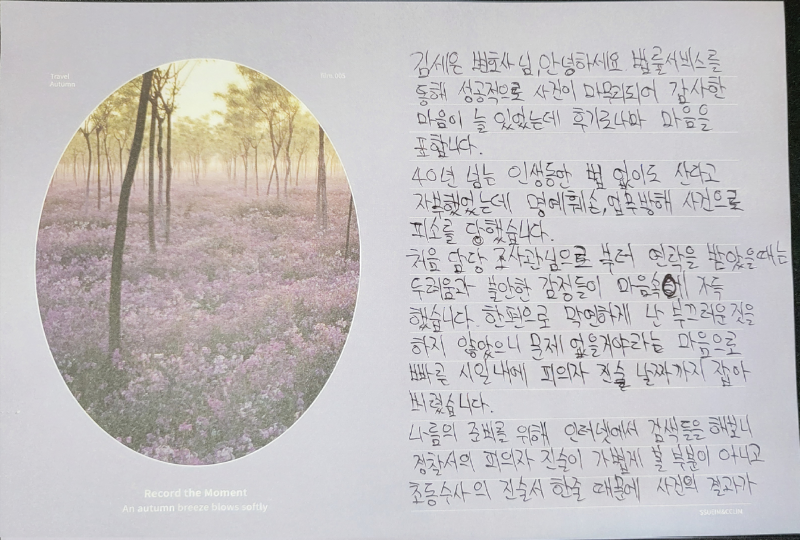 Travel
Autumn
Record the Moment
An autumn breeze blows softly
김세은 변호사님, 안녕하세요 법률서비스를
통해 성공적으로 사건이 마무리되어 감사한
마음이 늘 있었는데 후기로나마 마음을
표합니다.
40년 넘는 인생동안 법 없이도 산다고
자부했었는데 명예훼손, 업무방해 사건으로
피소를 당했습니다.
처음 담당 조사관님으로 부터 연락을 받았을때는
두려움과 불안한 감정들이 마음속에 가득
했습니다. 한편으로 막연하게 난 부끄러운 짓을
하지 않았으니 문제 없을거야라는 마음으로
빠른 시일내에 피의자 진술 날짜까지 잡아
버렸습니다.
나름의 준비를 위해 인터넷에서 검색등을 해보니
경찰서의 피의자 진술이 가볍게 볼 부분이 아니고
초동수사의 진술서 한줄 때문에 사건의 결과가